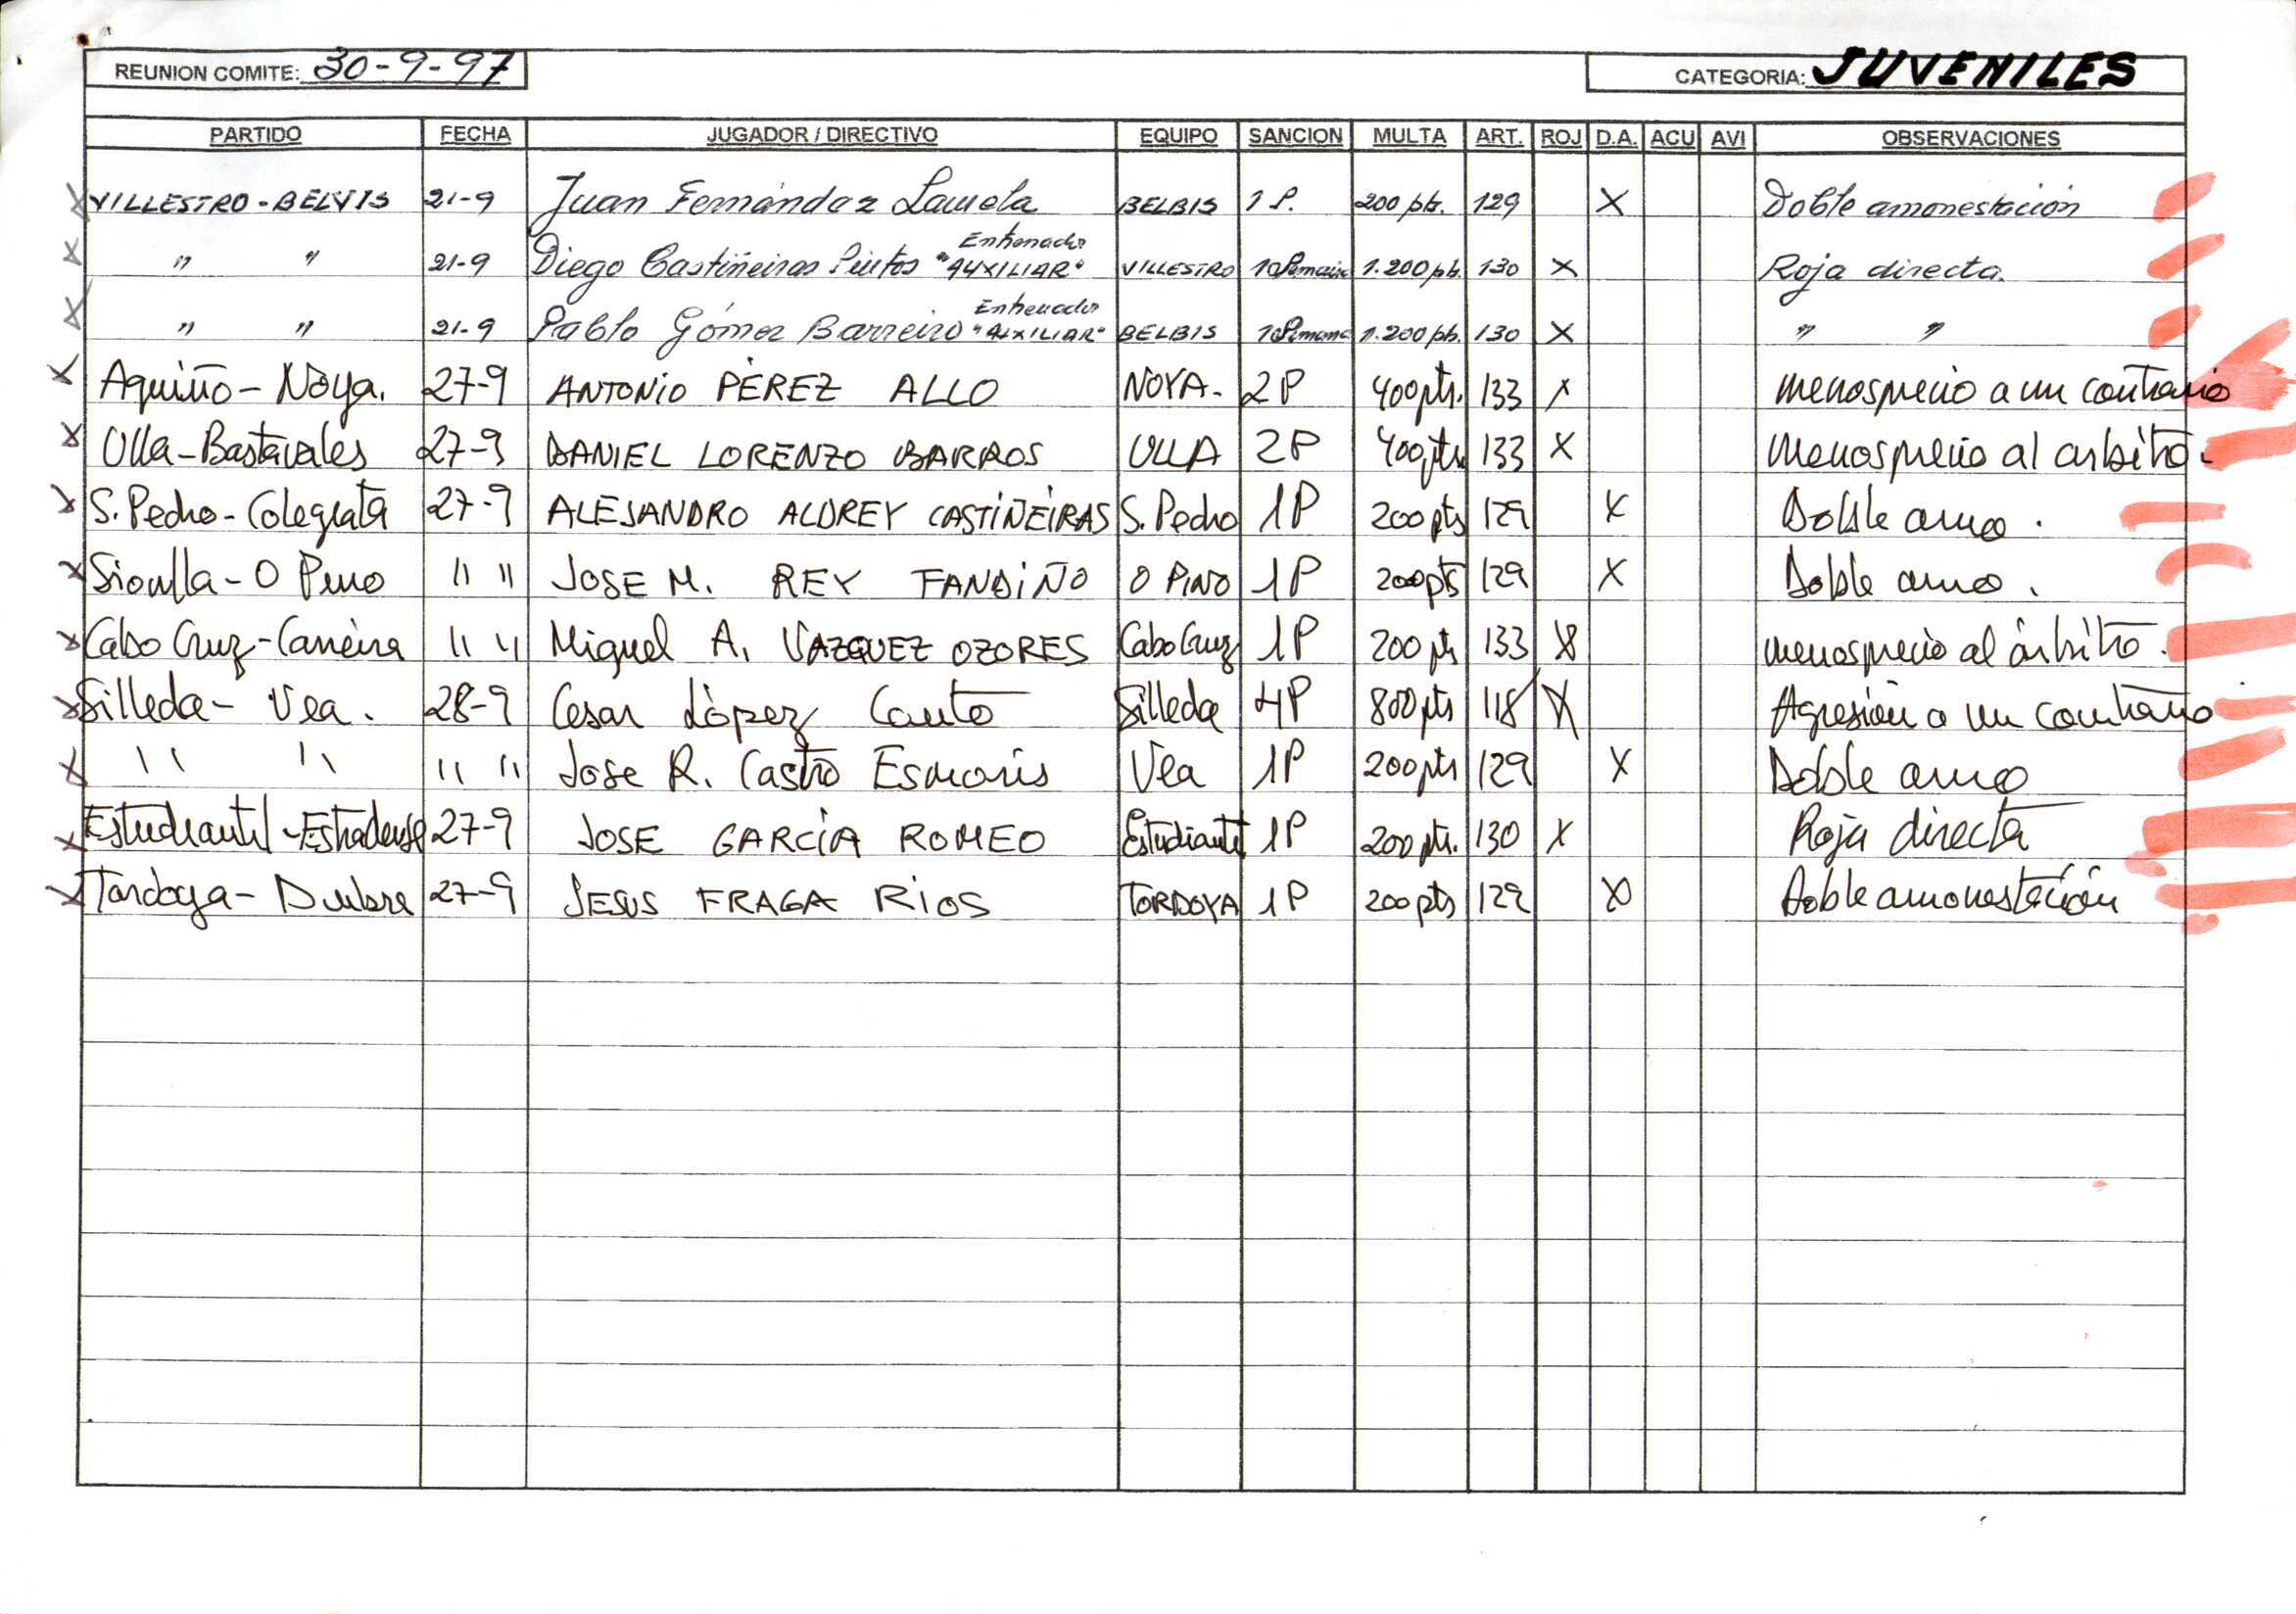 REUNION COMITE: 30-9-97 CATEGORIA: JUVENILES
PARTIDO FECHA JUGADOR / DIRECTIVO EQUIPO SANCION MULTA ART. ROJ D.A. ACU AVI OBSERVACIONES
X VILLESTRO - BELVIS 21-9 Juan Fernández Lamela BELBIS 1 P. 200 pts. 129 X Doble amonestación
X " " 21-9 Diego Castiñeiras Pintos Entrenador "AUXILIAR" VILLESTRO 1.200 pts. 130 X Roja directa.
X " " 21-9 Pablo Gómez Barreiro Entrenador "AUXILIAR" BELBIS 1.200 pts. 130 X " "
X Aguiño - Noya. 27-9 ANTONIO PÉREZ ALLO NOYA- 2P 400 pts. 133 X menosprecio a un contrario
X Ulla - Bastavales 27-9 DANIEL LORENZO BARROS ULLA 2P 400 pts 133 X menosprecio al arbitro.
X S. Pedro - Colegiata 27-9 ALEJANDRO ALDREY CASTIÑEIRAS S. Pedro 1P 200 pts 129 X Doble amo.
X Sionlla - O Pino " " JOSE M. REY FANDIÑO O PINO 1P 200 pts 129 X Doble amo.
X Cabo Cruz - Carreira " " Miguel A. VAZQUEZ OZORES Cabo Cruz 1P 200 pts 133 X menosprecio al árbitro.
X Silleda - Vea. 28-9 Cesar López Couto Silleda 4P 800 pts 118 X Agresión a un contrario
X " " " " Jose R. Castro Esmoris Vea 1P 200 pts 129 X Doble amo
X Estudiantil - Estradense 27-9 JOSE GARCÍA ROMEO Estudiantil 1P 200 pts. 130 X Roja directa
X Tordoya - Dubra 27-9 JESUS FRAGA RIOS TORDOYA 1P 200 pts 129 X Doble amonestación